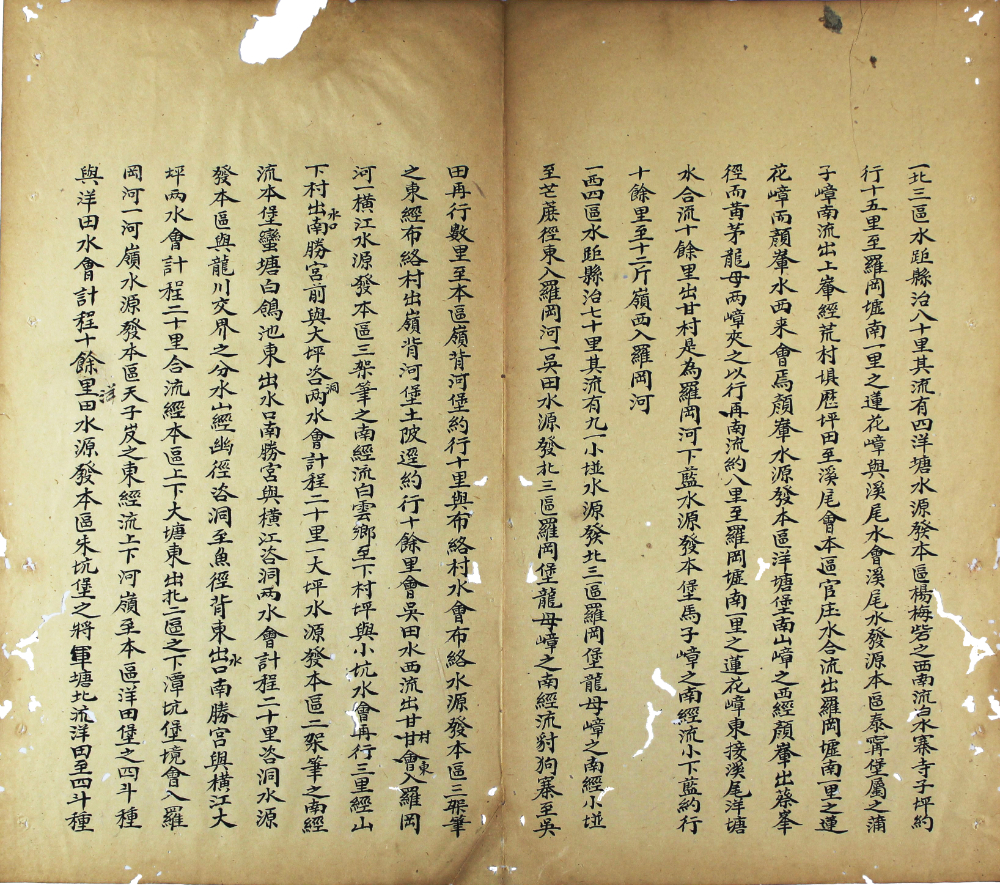 一北三區水距縣治八十里其流有四洋塘水源發本區楊梅砦之西南流白水寨寺子坪約
行十五里至羅岡墟南一里之蓮花嶂與溪尾水會溪尾水發源本區泰甯堡屬之蒲
子嶂南流出上輋經荒村埧歷坪田至溪尾會本區官庄水合流出羅岡墟南一里之蓮
花嶂而顏輋水西来會焉顏輋水源發本區洋塘堡南山嶂之西經顏輋出蔡峯
徑而黃茅龍母两嶂夾之以行再南流約八里至羅岡墟南一里之蓮花嶂東接溪尾洋塘
水合流十餘里出甘村是為羅岡河下藍水源發本堡馬子嶂之南經流小下藍約行
十餘里至十二斤嶺西入羅岡河
一西四區水距縣治七十里其流有九一小𡍼水源發北三區羅岡堡龍母嶂之南經小𡍼
至芒蔴徑東入羅岡河一吳田水源發北三區羅岡堡龍母嶂之南經流豺狗寨至吳
田再行数里至本區嶺背河堡約行十里與布絡村水會布絡水源發本區三架筆
之東經布絡村出嶺背河堡土陂逕約行十餘里會吳田水西流出甘村東會入羅岡
河一橫江水源發本區三架筆之南經流白雲鄉至下村坪與小坑水會再行三里經山
下村出水口南勝宮前與大坪咨洞两水會計程二十里一大坪水源發本區二架筆之南經
流本堡蠻塘白鴿池東出水口南勝宮與橫江咨洞两水會計程二十里咨洞水源
發本區與龍川交界之分水山經幽徑咨洞至魚徑背東出水口南勝宮與橫江大
坪两水會計程二十里合流經本區上下大塘東出北二區之下潭坑堡境會入羅
岡河一河嶺水源發本區天子岌之東經流上下河嶺至本區洋田堡之四斗種
與洋田水會計程十餘里洋田水源發本區朱坑堡之將軍塘北流洋田至四斗種